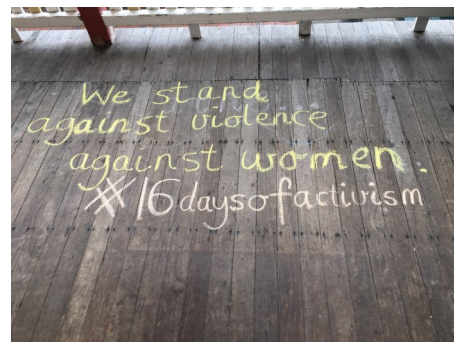 We stand
against violence
against women.
#16daysofactivism